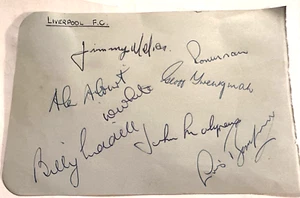 LIVERPOOL F.C.
Jimmy Melia
Ronnie Moran
Alan A'Court
Geoff Twentyman
D. White
Billy Liddell
John Molyneux